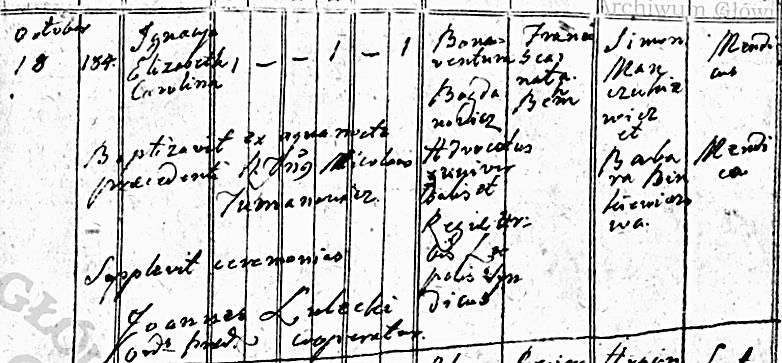 October
18
184.
Ignacya
Elizabeth
Carolina
1 – – 1 – 1
Bona-
ventura
Bogda
nowicz
Advocatus
et
Regul
Leo
polis Syn
dicus
Franci
sca
nata
Simon
Mar
czenkie
wicz
et
Barba
ra Bin
kiewiczo
wa.
Mendi
cus
Mendi
ca
Baptizavit ex aqua nocte
precedenti Nicolaus
Tumanowicz.
Supplevit ceremonias
Joannes Lulecki
Ord. Pred. cooperator.
Archiwum Główn
GŁÓW